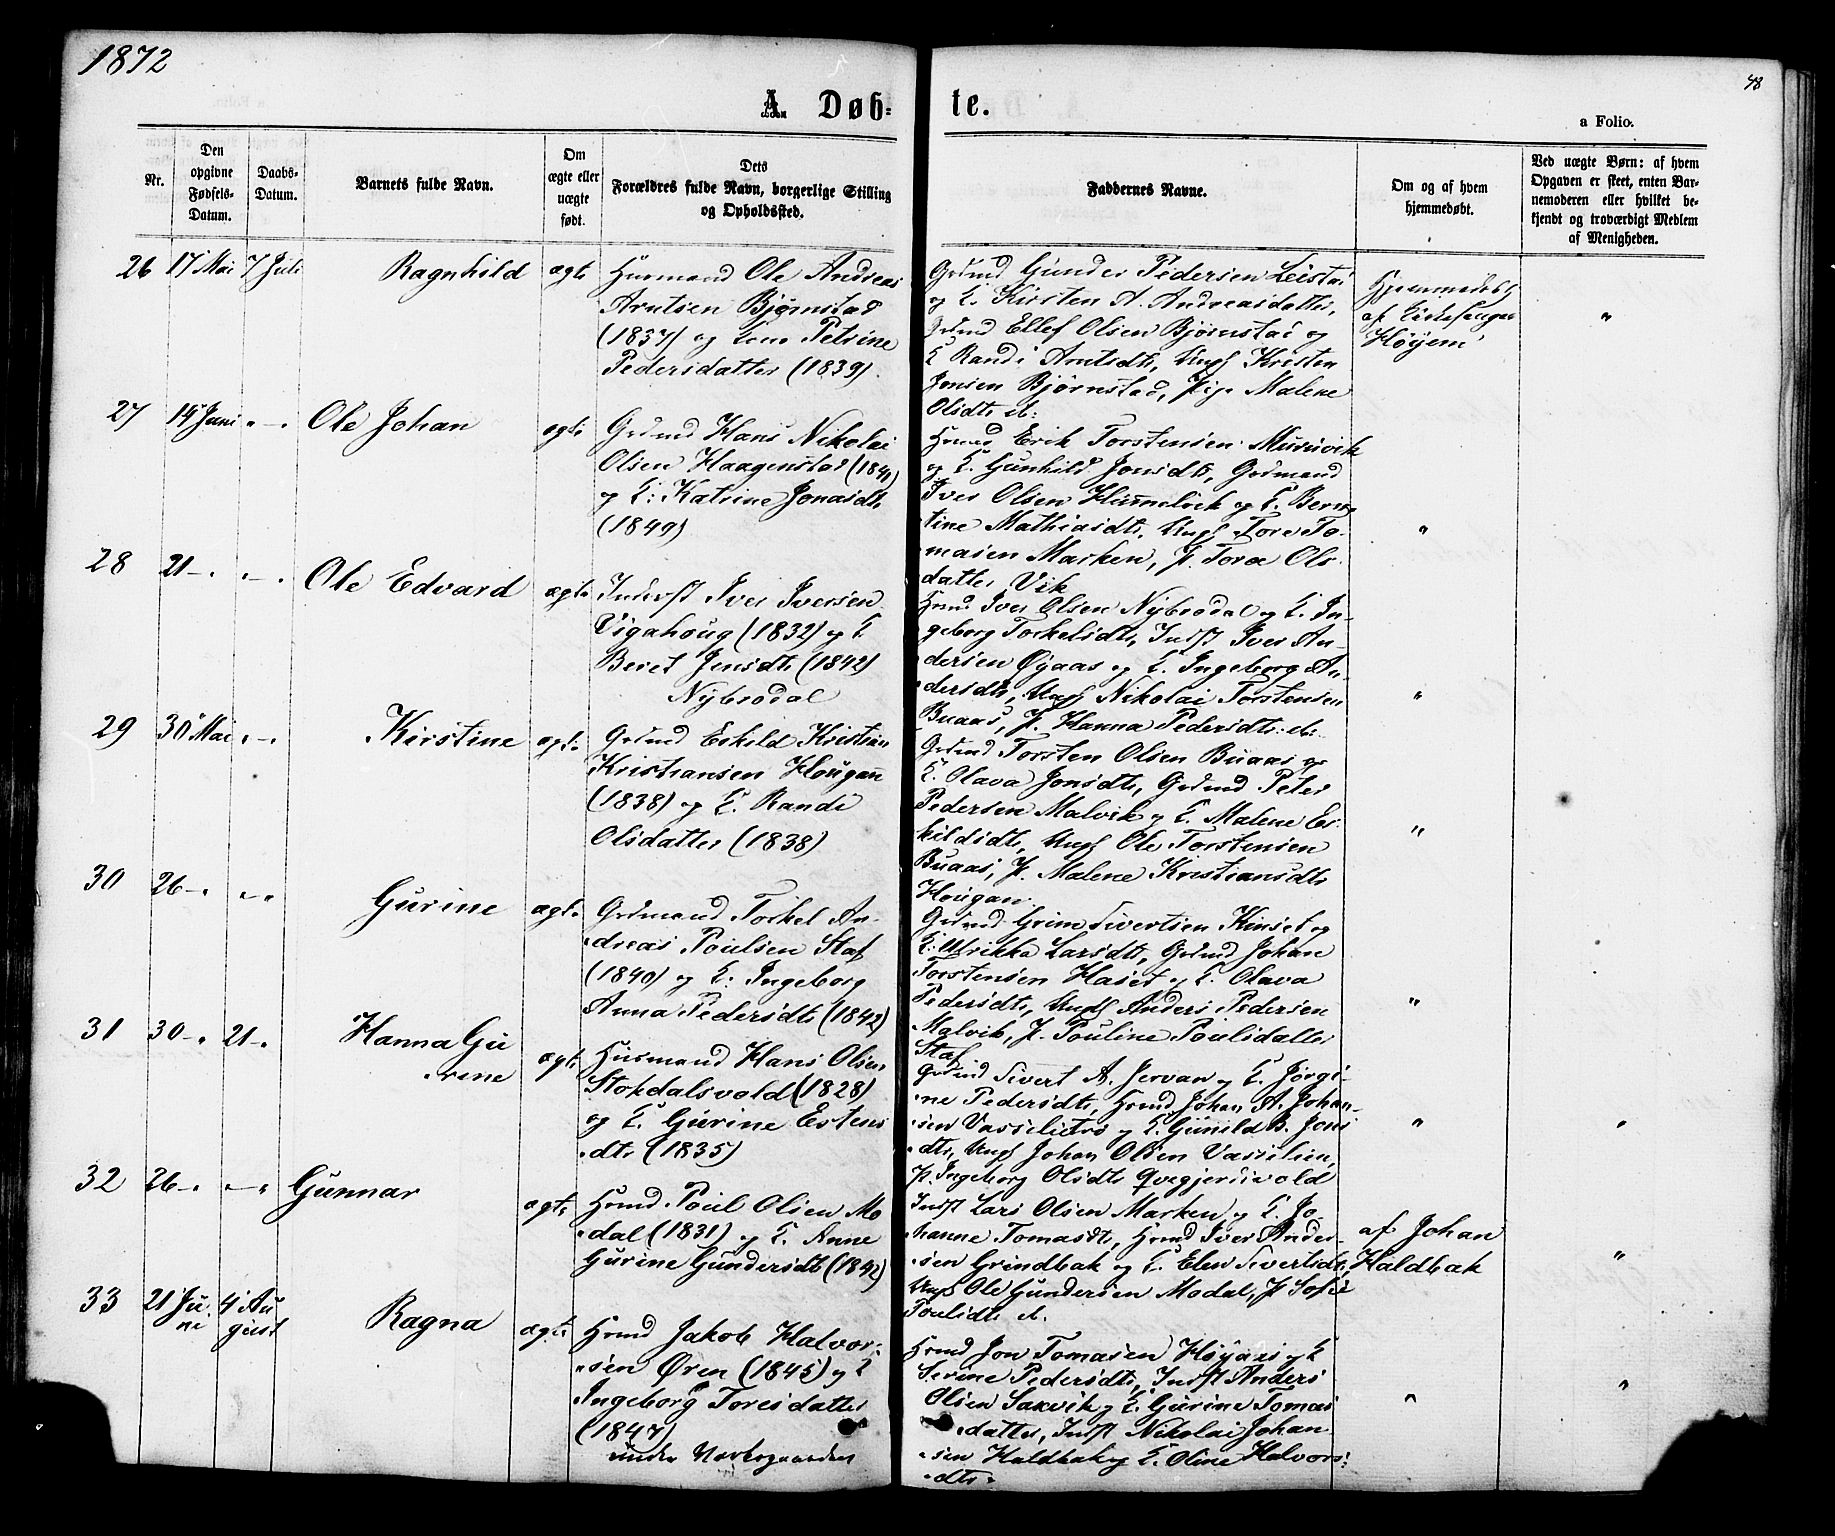 1872
48
A. Døb-
te.
a Folio.
Nr.
Den
opgivne
Fødsels-
Datum.
Daabs-
Datum.
Barnets fulde Navn.
Om
ægte eller
uægte
født.
Dets
Forældres fulde Navn, borgerlige Stilling
og Opholdssted.
Faddernes Navne.
Om og af hvem
hjemmedøbt.
Ved uægte Børn: af hvem
Opgaven er skeet, enten Bar-
nemoderen eller hvilket be-
kjendt og troværdigt Medlem
af Menigheden.
26 17 Mai 7 Juli Ragnhild ægte
Husmand Ole Andreas
Arntsen Bjørnstad
(1837) og Kone Petrine
Pedersdatter (1839).
Grdmd Gunder Pedersen Leistad
og K. Kirsten A. Andreasdatter,
Grdmd Ellef Olsen Bjørnstad og
K Randi Arntsdtr, Ungk Kristen
Jonsen Bjørnstad, Pige Malene
Olsdtr ib:
Hjemmedøbt
af
Høyem
"
27 14 Juni "–" Ole Johan ægte
Grdmd Hans Nikolai
Olsen Haagenstad (1840)
og K: Katrine Jonasdtr
(1849)
Hsmd Erik Torstensen Muruvik
og K. Gunhild Jonsdtr, Grdmand
Iver Olsen Hummelvik og K. Bern-
tine Mathiasdtr, Ungk Tore To-
masen Marken, P. Toræ Ols-
datter Vik
"
28 21 –" "–" Ole Edvard ægte
Inderst Iver Iversen
Vigahoug (1832) og K
Beret Jensdtr (1842)
Nybrodal
Hsmd Iver Olsen Nybrodal og K. In-
geborg Torkelsdtr, Indst Iver An-
dersen Øyaas og K. Ingeborg An-
dersdtr, Ungk Nikolai Torstensen
Buaas, P. Hanna Pedersdtr ib:
"
29 30 Mai "–" Kirstine ægte
Grdmd Eskild Kristian
Kristiansen Hougan
(1838) og K. Randi
Olsdatter (1838)
Grdmd Torsten Olsen Buaas og
K. Olava Jonsdtr, Grdmd Peter
Pedersen Malvik og K. Malene Es-
kildsdtr, Ungk Ole Torstensen
Buaas, P. Malene Kristiansdtr
Hougan.
"
30 26 –" "" Gurine ægte
Grdmand Torkel An-
dreas Poulsen Staf
(1840) og K: Ingeborg
Anna Pedersdtr (1842)
Grdmd Grim Sivertsen Kinset og
K: Ulrikka Larsdtr, Grdmd Johan
Torstensen Haset og K. Olava
Pedersdtr, Ungk Anders Pedersen
Malvik, P. Pouline Poulsdatter
Staf
"
31 30 –" 21 –" Hanna Gu
rine ægte
Husmand Hans Olsen
Stokdalsvold (1828)
og K. Gurine Estens
dtr (1835)
Grdmd Sivert A. Jervan og K. Jørgi-
ne Pedersdtr, Hsmd Johan A. Johan-
sen Vasselietrø og K. Gunild B. Jons
dtr, Ungk Johan Olsen Vasselien,
P. Ingeborg Olsdtr
" "
32 26 –" "–" Gunnar ægte
Hsmd Poul Olsen Mo
dal (1831) og K. Anne
Gurine Gundersdtr (1842)
Indst Lars Olsen Marken og K. Jo-
hanne Tomasdtr, Hsmd Iver Ander-
sen Grindbak og K. Elen Sivertsdtr,
Ungk Ole Gundersen Modal, P Sofie
Poulsdtr ib.
af Johan
Haldbak
"
33 21 Ju
ni 4 Au
gust Ragna ægte
Hsmd Jakob Halvor-
sen Øren (1845) og K
Ingeborg Toresdatter
(1847)
under Norbygaarden
Hsmd Jon Tomasen Høyaas og K
Serine Pedersdtr, Indst Anders
Olsen Saxvik og K. Gurine Tomas
datter, Indst Nikolai Johan
sen Haldbak og K. Oline Halvors-
dtr.
" "